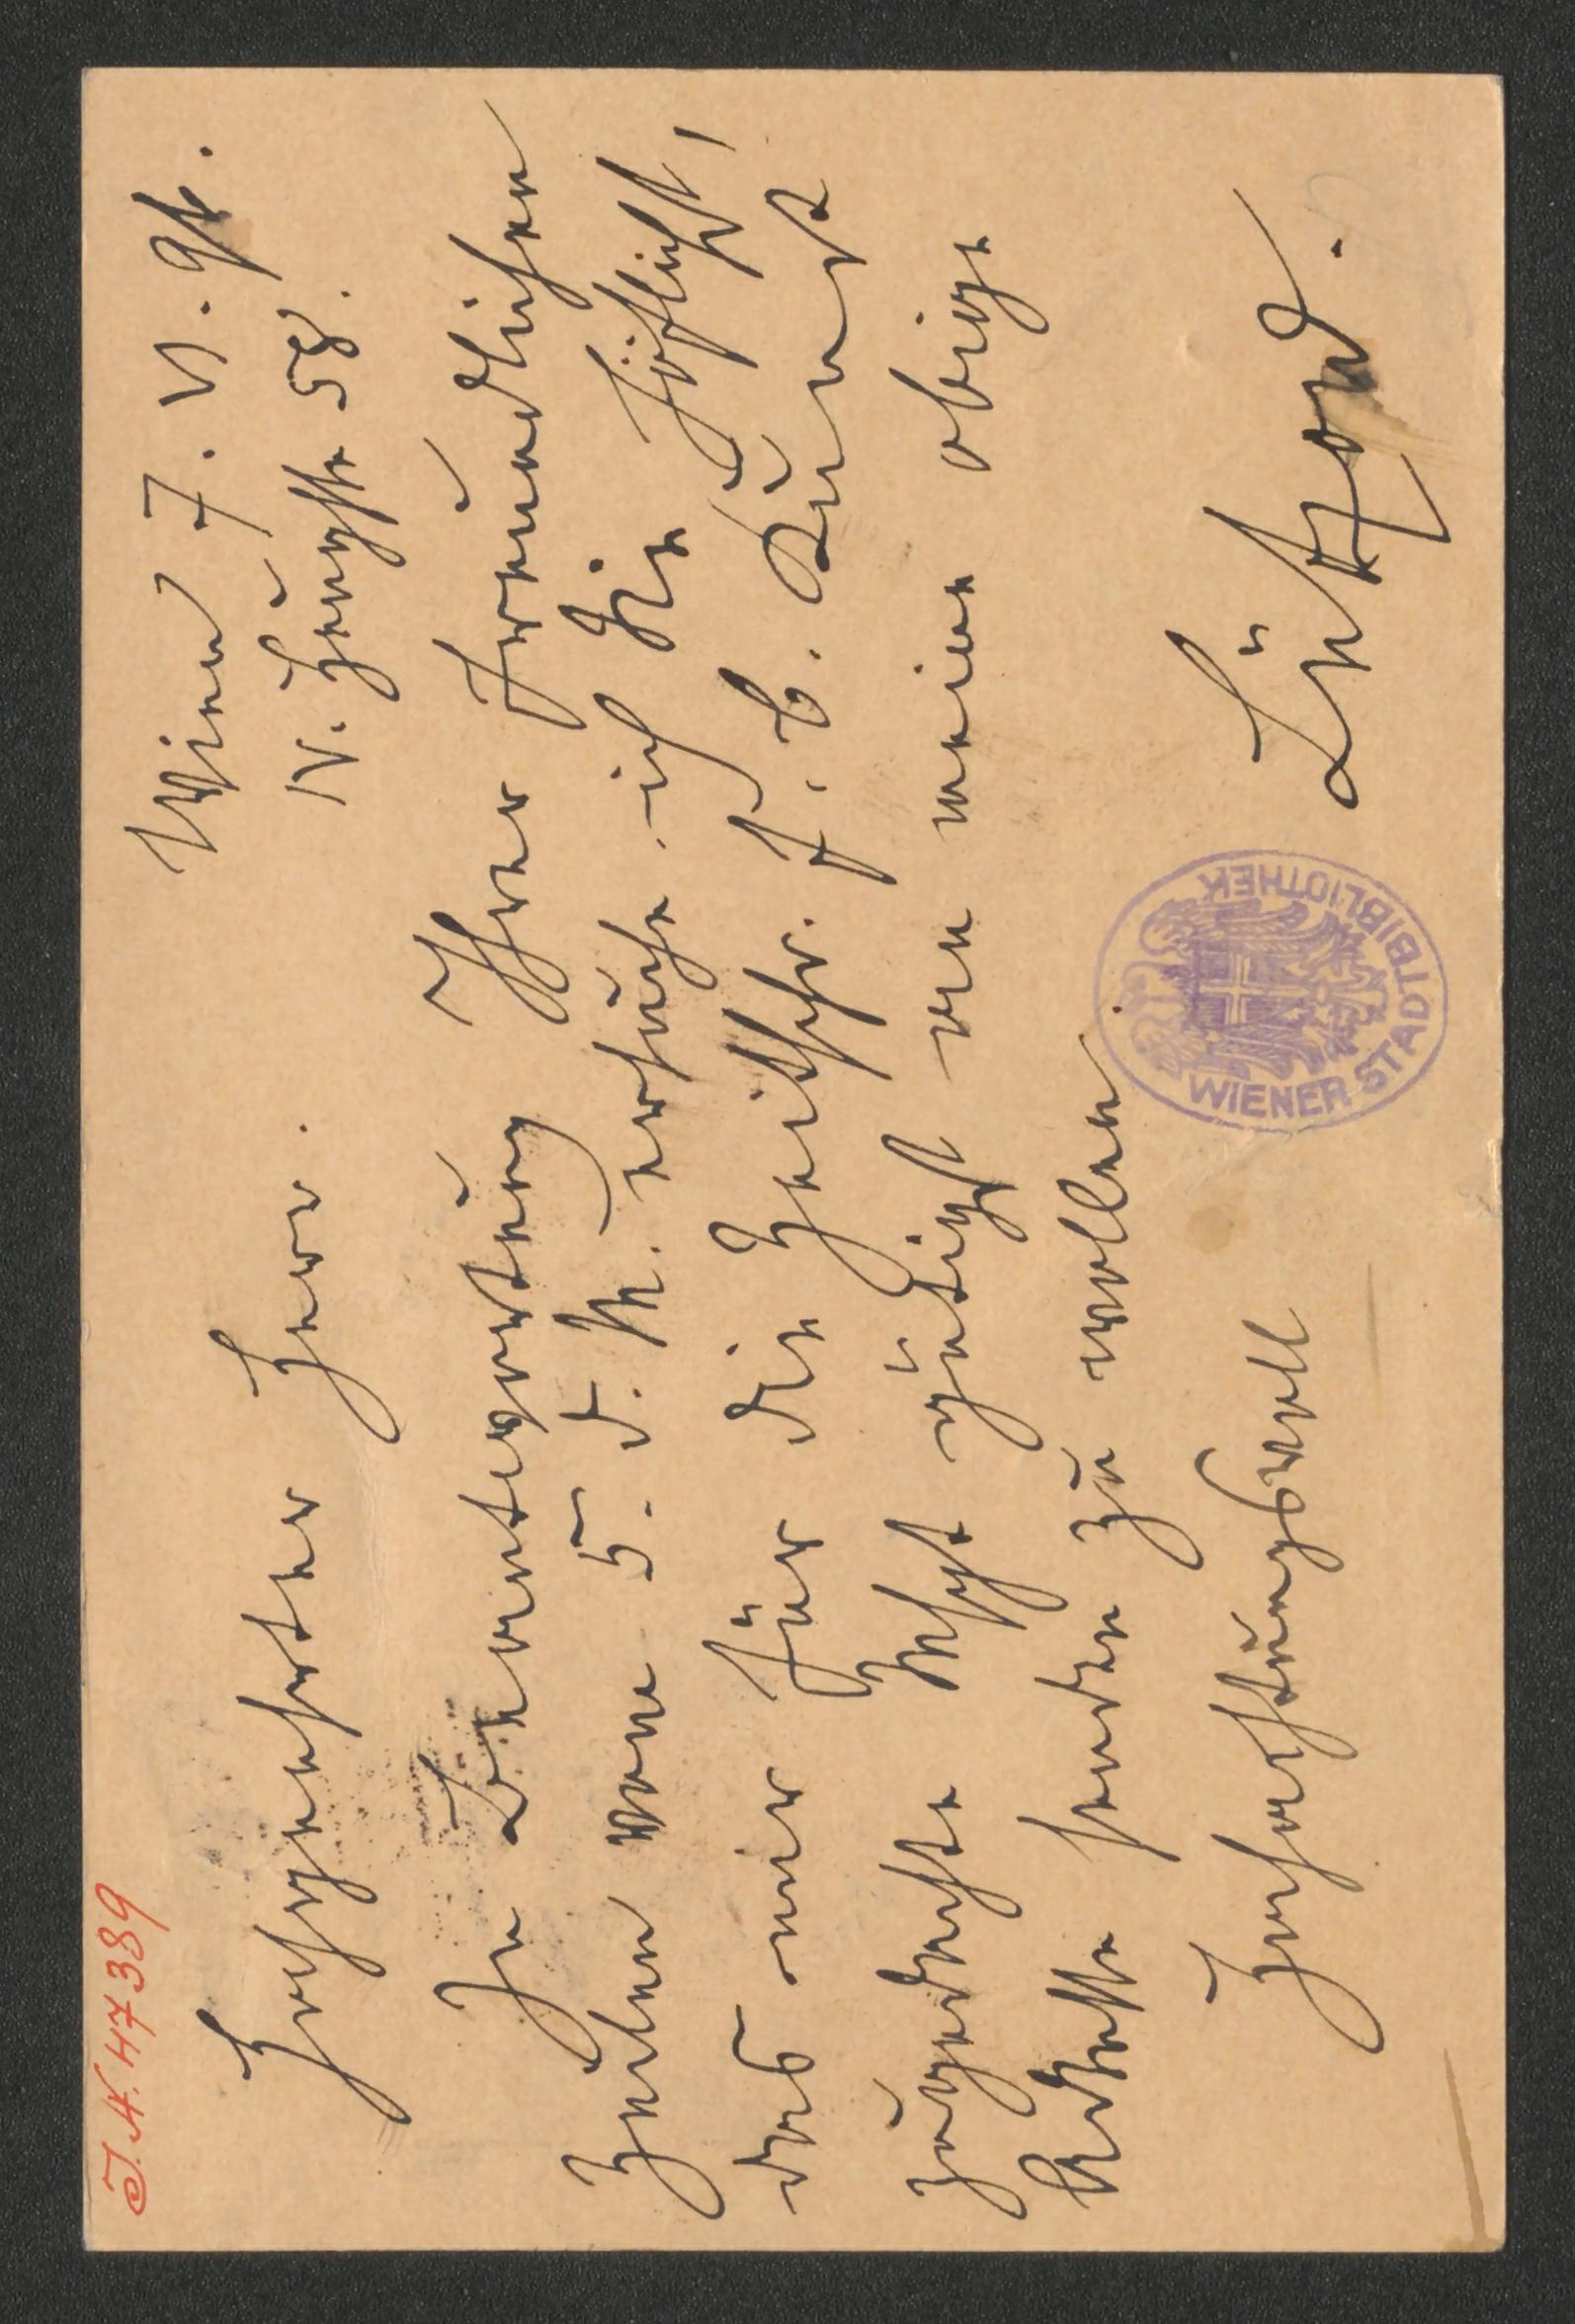 J. N. 47389
Wien 7. VI. 94.
IV. Heugasse 58.
Hochgeehrter Herr.
In Beantwortung Ihrer freundlichen
Zeilen vom 5. d. M. ersuche ich Sie höflichst,
das mir für die Zeitschr. f. b. Kunst
zugedachte Mscpt gütigst an meine obige
Adresse senden zu wollen.
Hochachtungsvoll
Lützow.
WIENER STADTBIBLIOTHEK